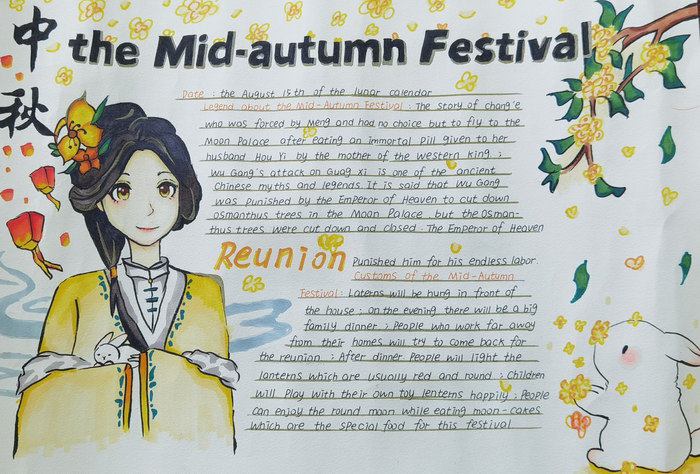 中秋
the Mid-autumn Festival
Date : the August 15th of the lunar calendar
Legend about the Mid-Autumn Festival : The story of chang'e
who was forced by Meng and had no choice but to fly to the
Moon Palace after eating an immortal Pill given to her
husband Hou Yi by the mother of the western king ;
Wu Gang's attack on Guag Xi is one of the ancient
Chinese myths and legends. It is said that Wu Gang
was punished by the Emperor of Heaven to cut down
osmanthus trees in the Moon Palace, but the osman-
thus trees were cut down and closed . The Emperor of Heaven
Reunion Punished him for his endless labor.
Customs of the Mid-Autumn
Festival : Laterns will be hung in front of
the house ; on the evening there will be a big
family dinner ; People who work far away
from their homes will try to come back for
the reunion ; After dinner People will light the
lanterns which are usually red and round ; Children
will Play with their own toy lenterns happily ; People
can enjoy the round moon while eating moon-cakes
which are the special food for this festival